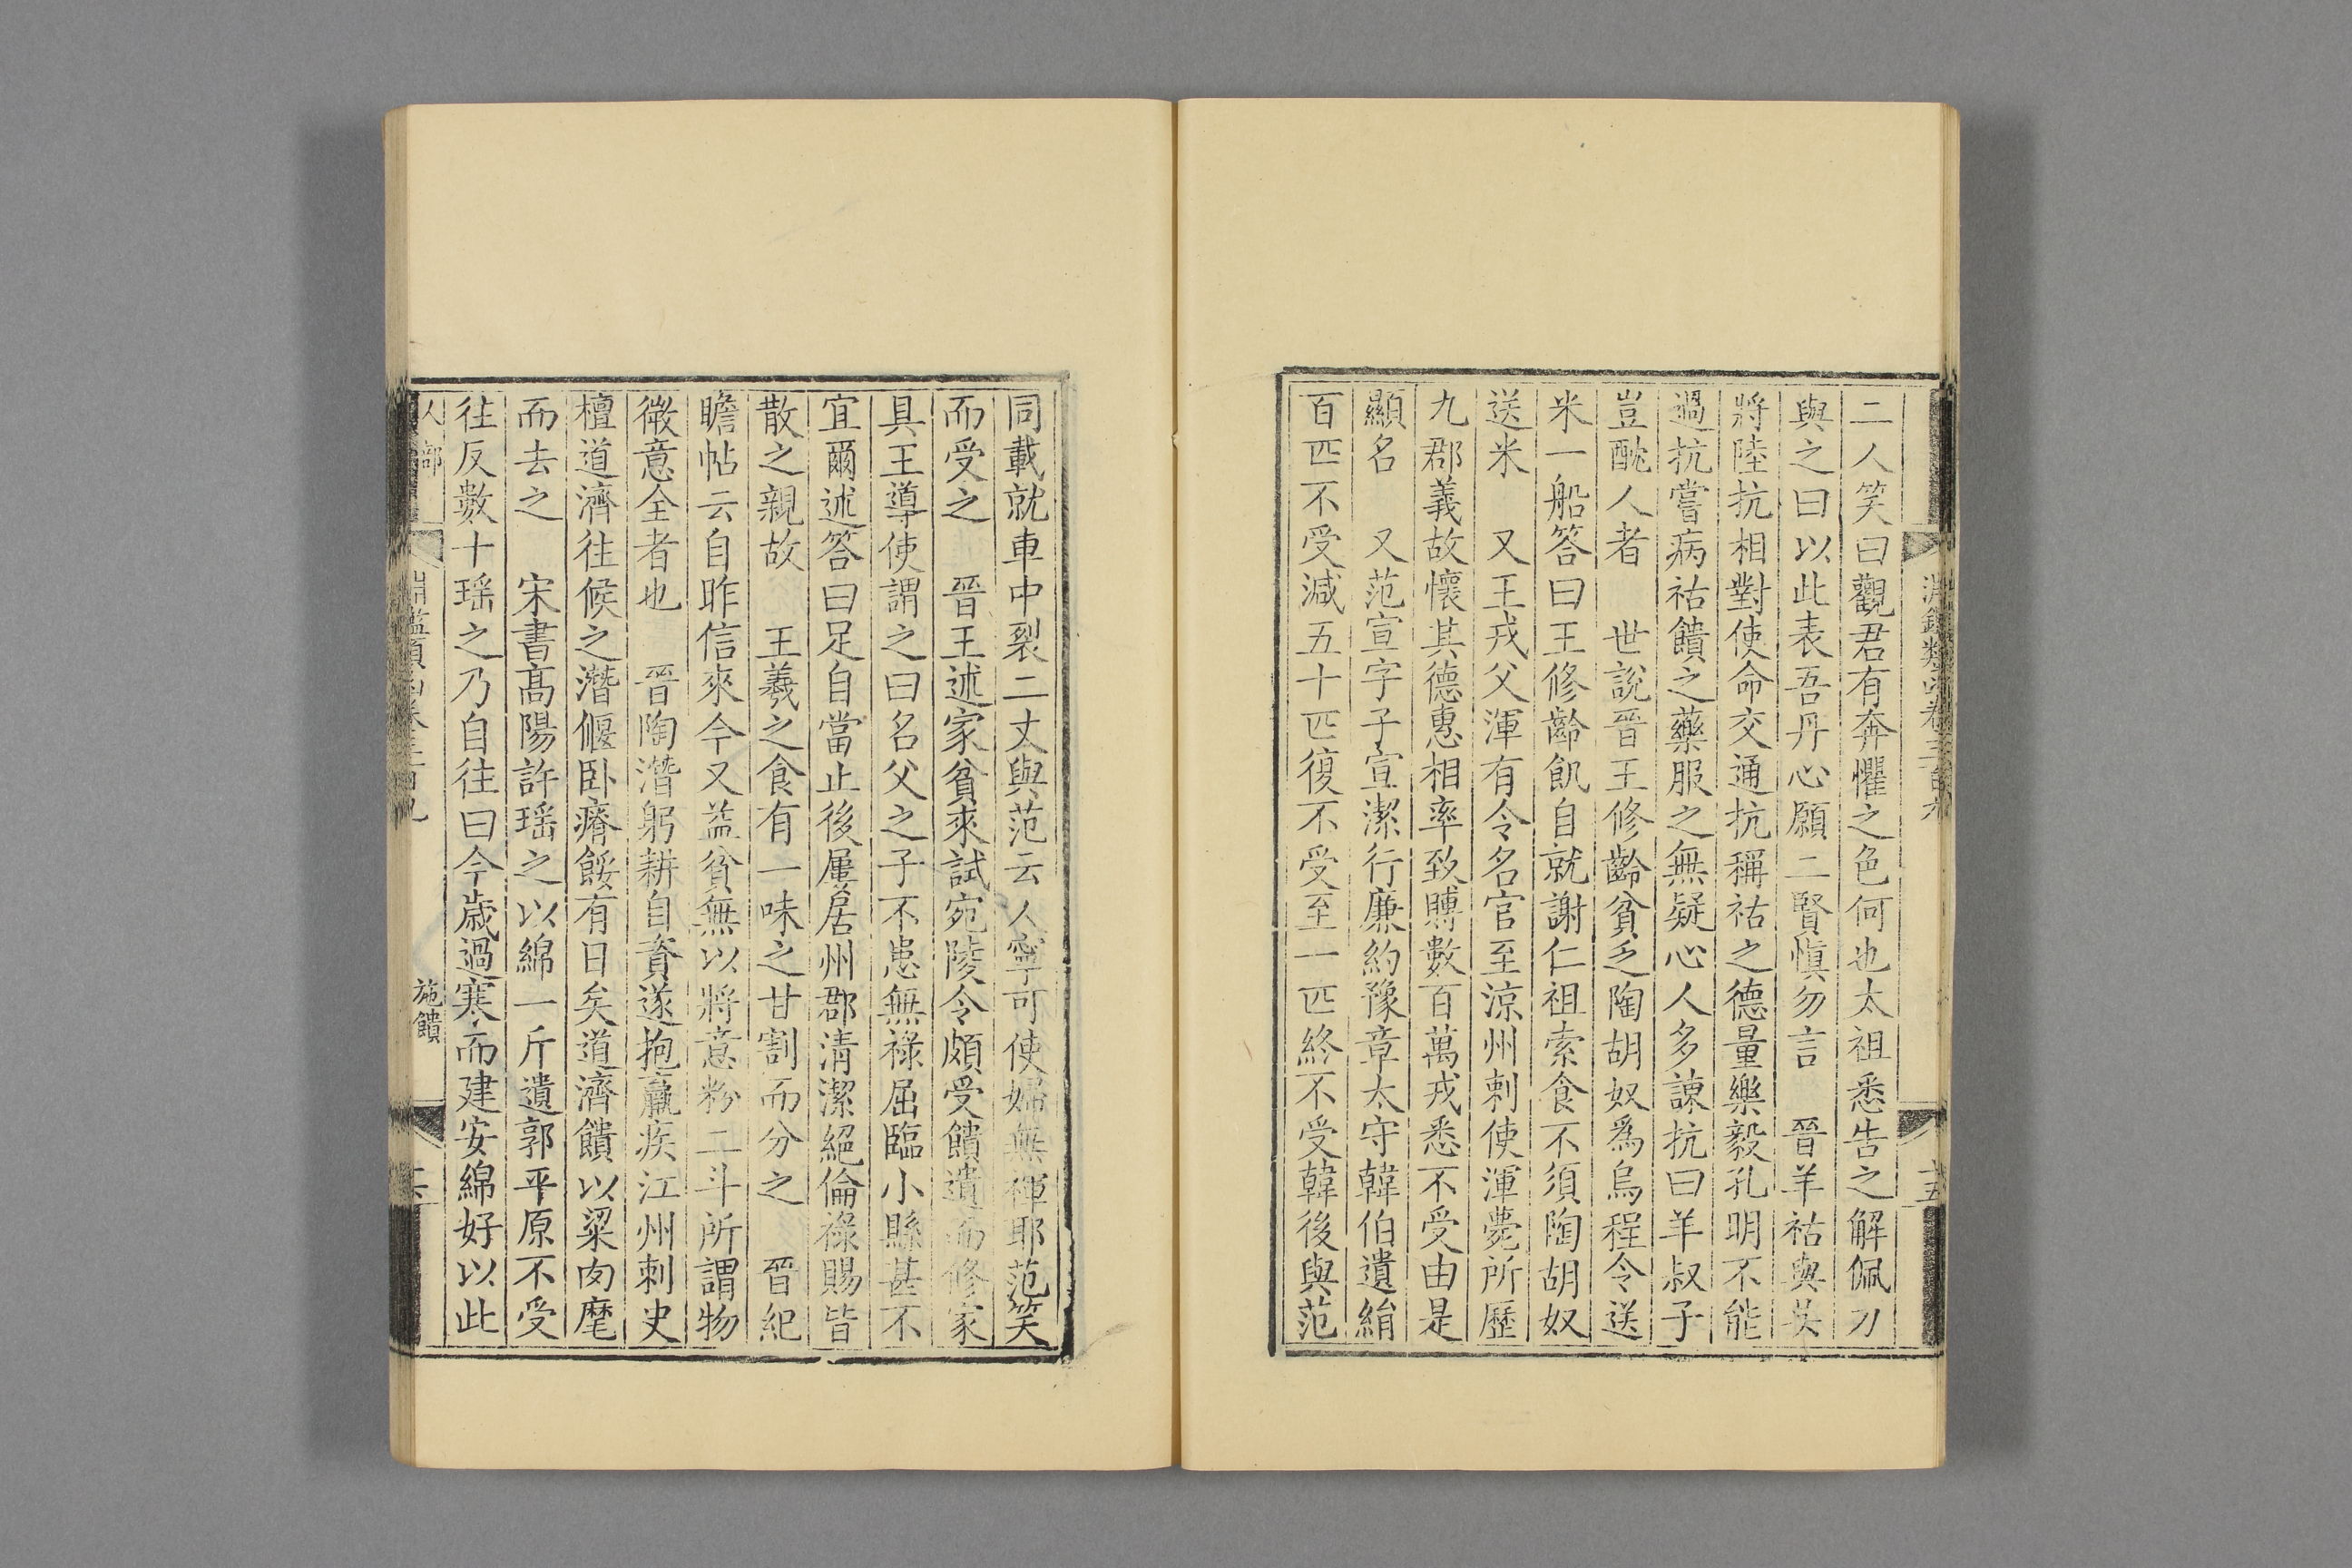 二人笑曰觀君有奔懼之色何也太祖悉告之解佩刀
與之曰以此表吾丹心願二賢愼勿言　晉羊祜與吳
將陸抗相對使命交通抗稱祜之德量樂毅孔明不能
過抗嘗病祜饋之藥服之無疑心人多諫抗曰羊叔子
豈酖人者　世說晉王修齡貧乏陶胡奴爲烏程令送
米一船答曰王修齡飢自就謝仁祖索食不須陶胡奴
送米　又王戎父渾有令名官至涼州刺使渾薨所歷
九郡義故懷其德惠相率致賻數百萬戎悉不受由是
顯名　又范宣字子宣潔行廉約豫章太守韓伯遺絹
百匹不受減五十匹復不受至一匹終不受韓後與范
同載就車中裂二丈與范云人寧可使婦無褌耶范笑
而受之　晉王述家貧來試宛陵令頗受饋遺而修家
具王導使謂之曰名父之子不患無祿屈臨小縣甚不
宜爾述答曰足自當止後屢居州郡淸潔絕倫祿賜皆
散之親故　王羲之食有一味之甘割而分之　晉紀
瞻帖云自昨信來今又益貧無以將意粉二斗所謂物
微意全者也　晉陶潛躬耕自資遂抱羸疾江州刺史
檀道濟往候之潛偃臥瘠餒有日矣道濟饋以粱肉麾
而去之　宋書高陽許瑤之以綿一斤遺郭平原不受
往反數十瑤之乃自往曰今歲過寒而建安綿好以此
人部
施饋